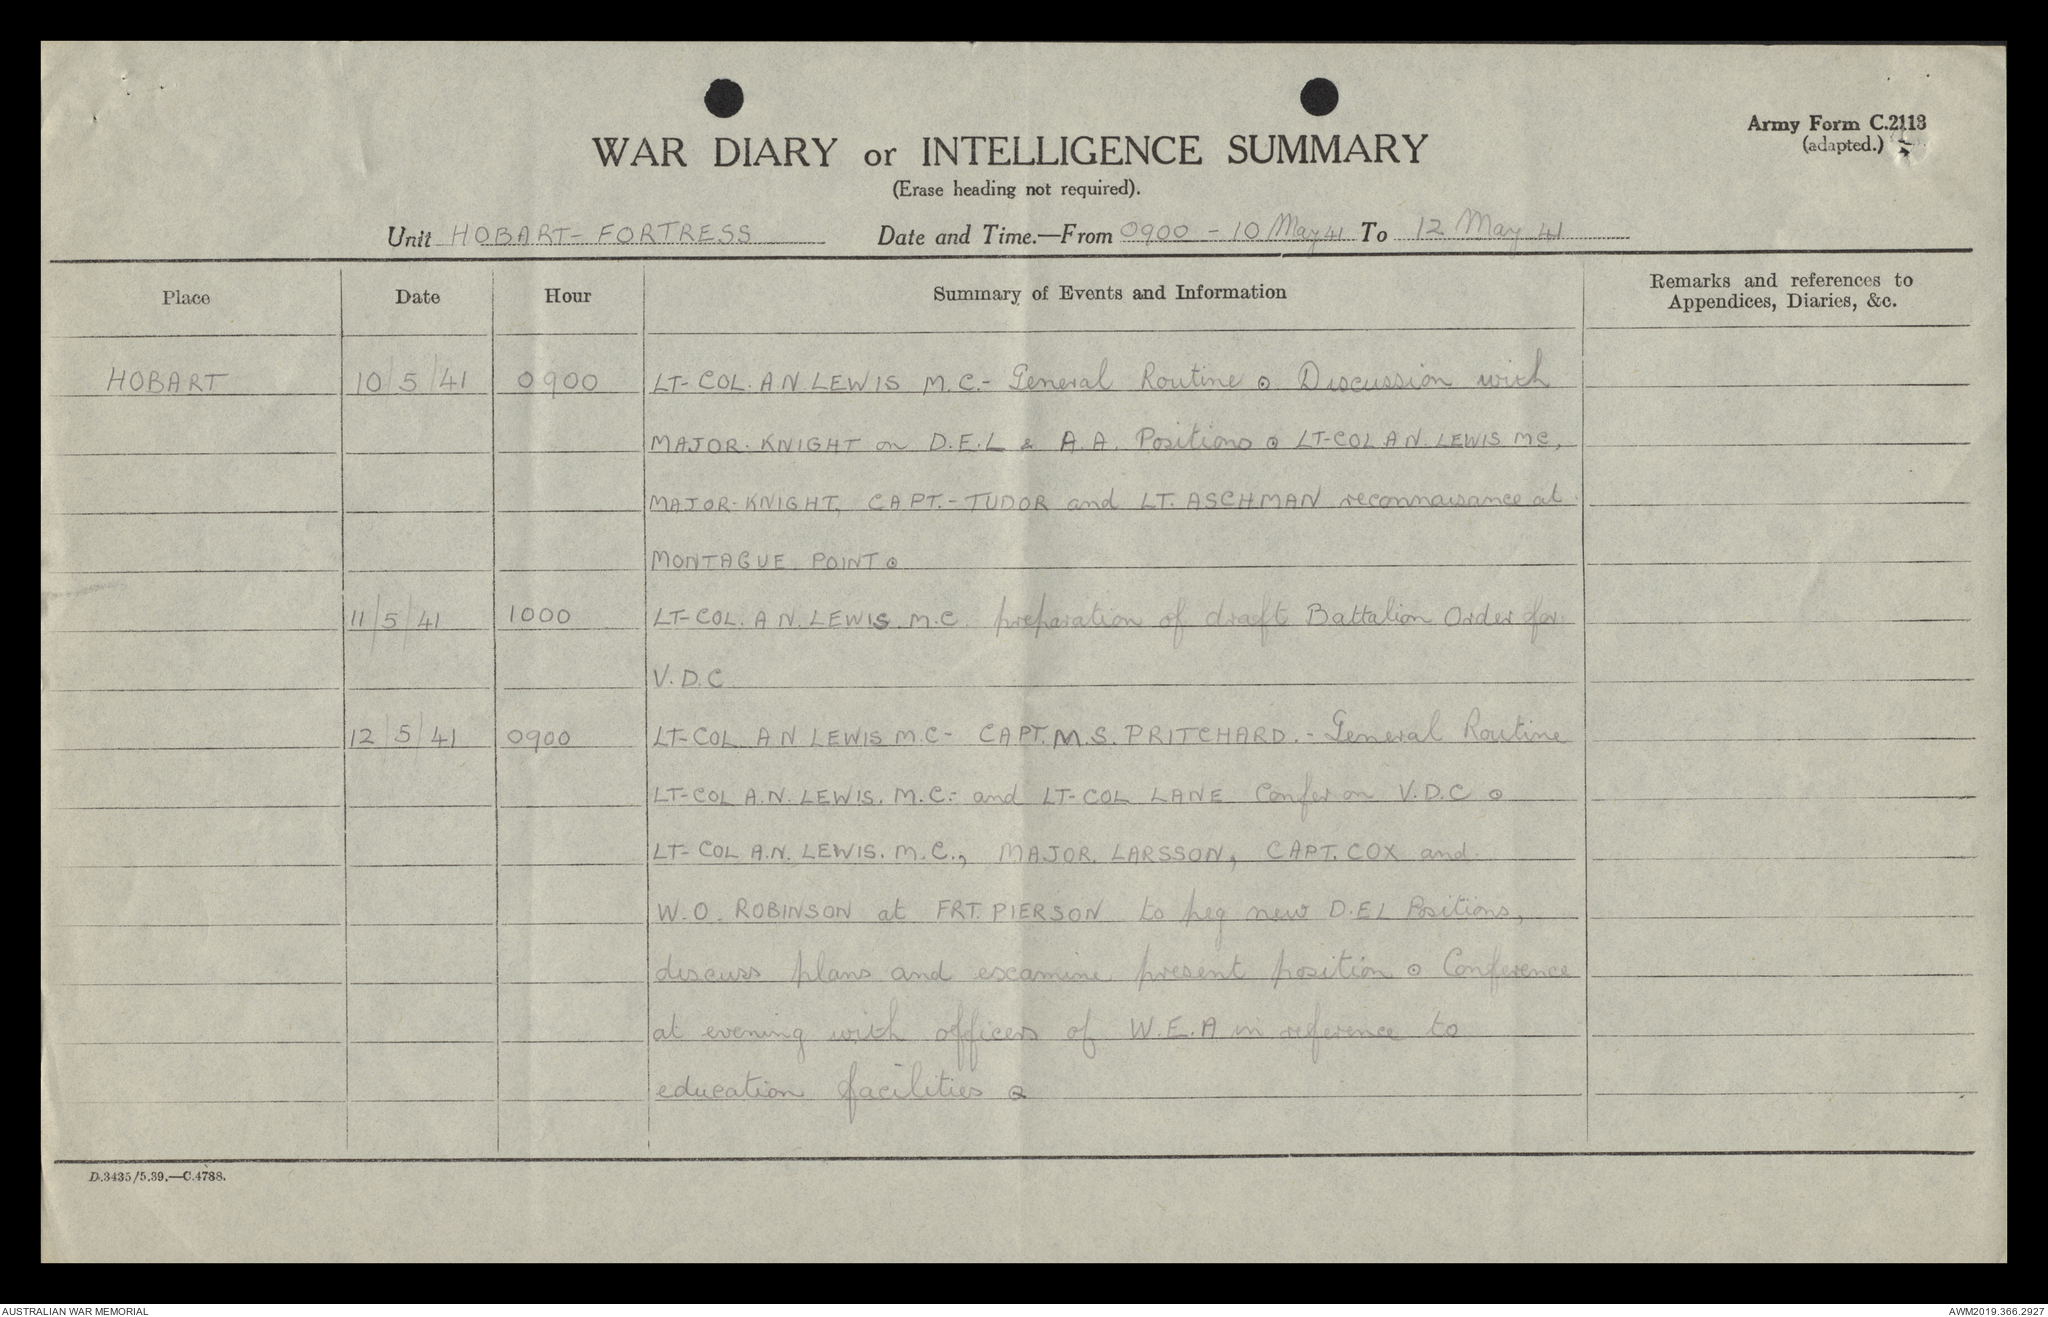 Army Form C.2118
(adapted.)
WAR DIARY or INTELLIGENCE SUMMARY
(Erase heading not required).
Unit HOBART-FORTRESS Date and Time.—From 0900 - 10 May 41 To 12 May 41
Place Date Hour Summary of Events and Information Remarks and references to
Appendices, Diaries, &c.
HOBART 10/5/41 0900 LT-COL. A N LEWIS M.C.- General Routine ⊙ Discussion with
MAJOR-KNIGHT on D.E.L & A.A. Positions ⊙ LT-COL A N. LEWIS MC,
MAJOR-KNIGHT, CAPT.-TUDOR and LT. ASCHMAN reconnaisance at
MONTAGUE POINT ⊙
11/5/41 1000 LT-COL. A N. LEWIS M.C. preparation of draft Battalion Order for
V.D.C
12/5/41 0900 LT-COL A N LEWIS M.C- CAPT. M.S. PRITCHARD. - General Routine
LT-COL A.N. LEWIS. M.C.- and LT-COL LANE Confer on V.D.C ⊙
LT-COL A.N. LEWIS. M.C., MAJOR. LARSSON, CAPT. COX and
W.O. ROBINSON at FRT. PIERSON to peg new D.E L Positions,
discuss plans and examine present position ⊙ Conference
at evening with officers of W.E.A in reference to
education facilities ⊙
D.3435/5.39.—C.4788.
AUSTRALIAN WAR MEMORIAL AWM2019.366.2927